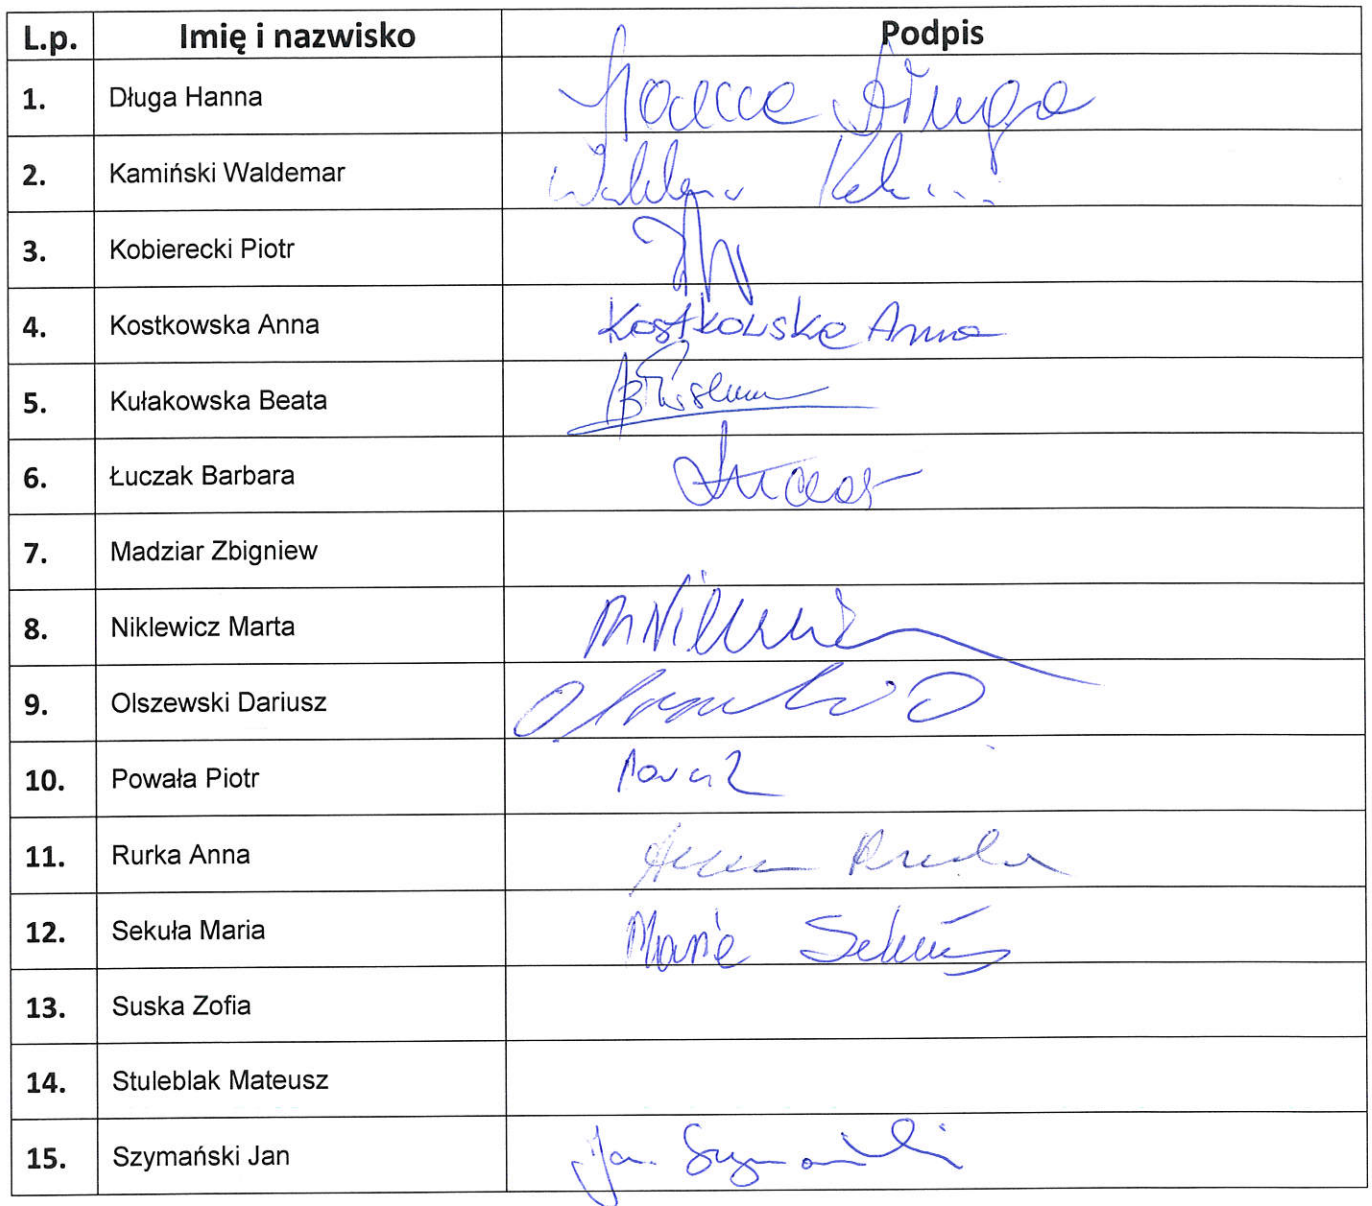 L.p. Imię i nazwisko Podpis
1. Długa Hanna Hanna Długa
2. Kamiński Waldemar
3. Kobierecki Piotr
4. Kostkowska Anna Kostkowska Anna
5. Kułakowska Beata
6. Łuczak Barbara
7. Madziar Zbigniew
8. Niklewicz Marta
9. Olszewski Dariusz
10. Powała Piotr
11. Rurka Anna Anna Rurka
12. Sekuła Maria Maria Sekuła
13. Suska Zofia
14. Stuleblak Mateusz
15. Szymański Jan Jan Szymański